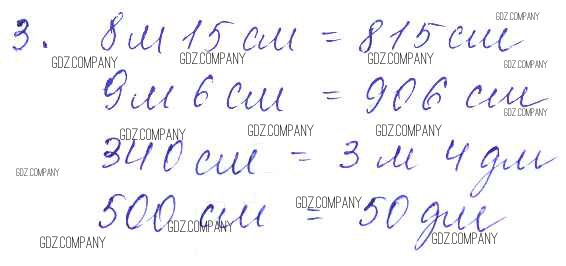 3. 8 м 15 см = 815 см
9 м 6 см = 906 см
340 см = 3 м 4 дм
500 см = 50 дм
GDZ.COMPANY
GDZ.COMPANY
GDZ.COMPANY
GDZ.COMPANY
GDZ.COMPANY
GDZ.COMPANY
GDZ.COMPANY
GDZ.COMPANY
GDZ.COMPANY
GDZ.COMPANY
GDZ.COMPANY
GDZ.COMPANY
GDZ.COMPANY
GDZ.COMPANY